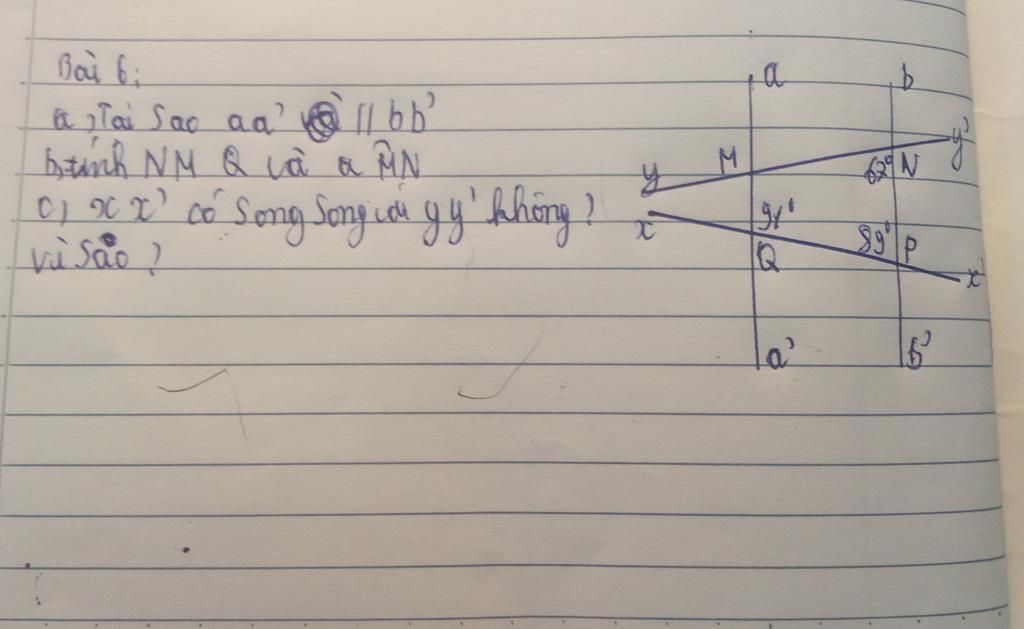 Bài 6:
a, Tại sao aa' // bb'
b, tính NMQ và aM̂N
c, xx' có song song với yy' không?
vì sao?
a
b
y'
M
N
62°
y
x
91°
89°
P
Q
x'
a'
b'